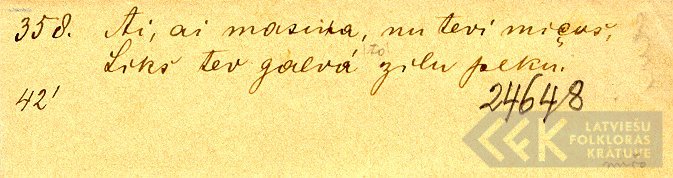 358. Ai, ai masiņa, nu tevi mičos,
to
Liks tev galvá zilu peku.
42'
24648
LATVIEŠU
FOLKLORAS
KRĀTUVE